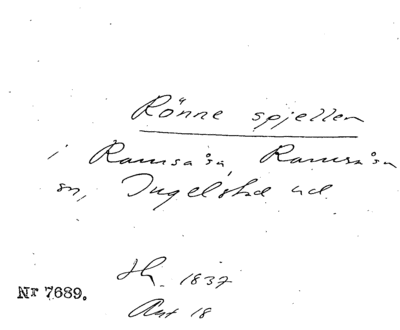 Rönne spjellen
i Ramsåsa, Ramsåsa
sn, Ingelstad hd
1837
Nr 7689.
18